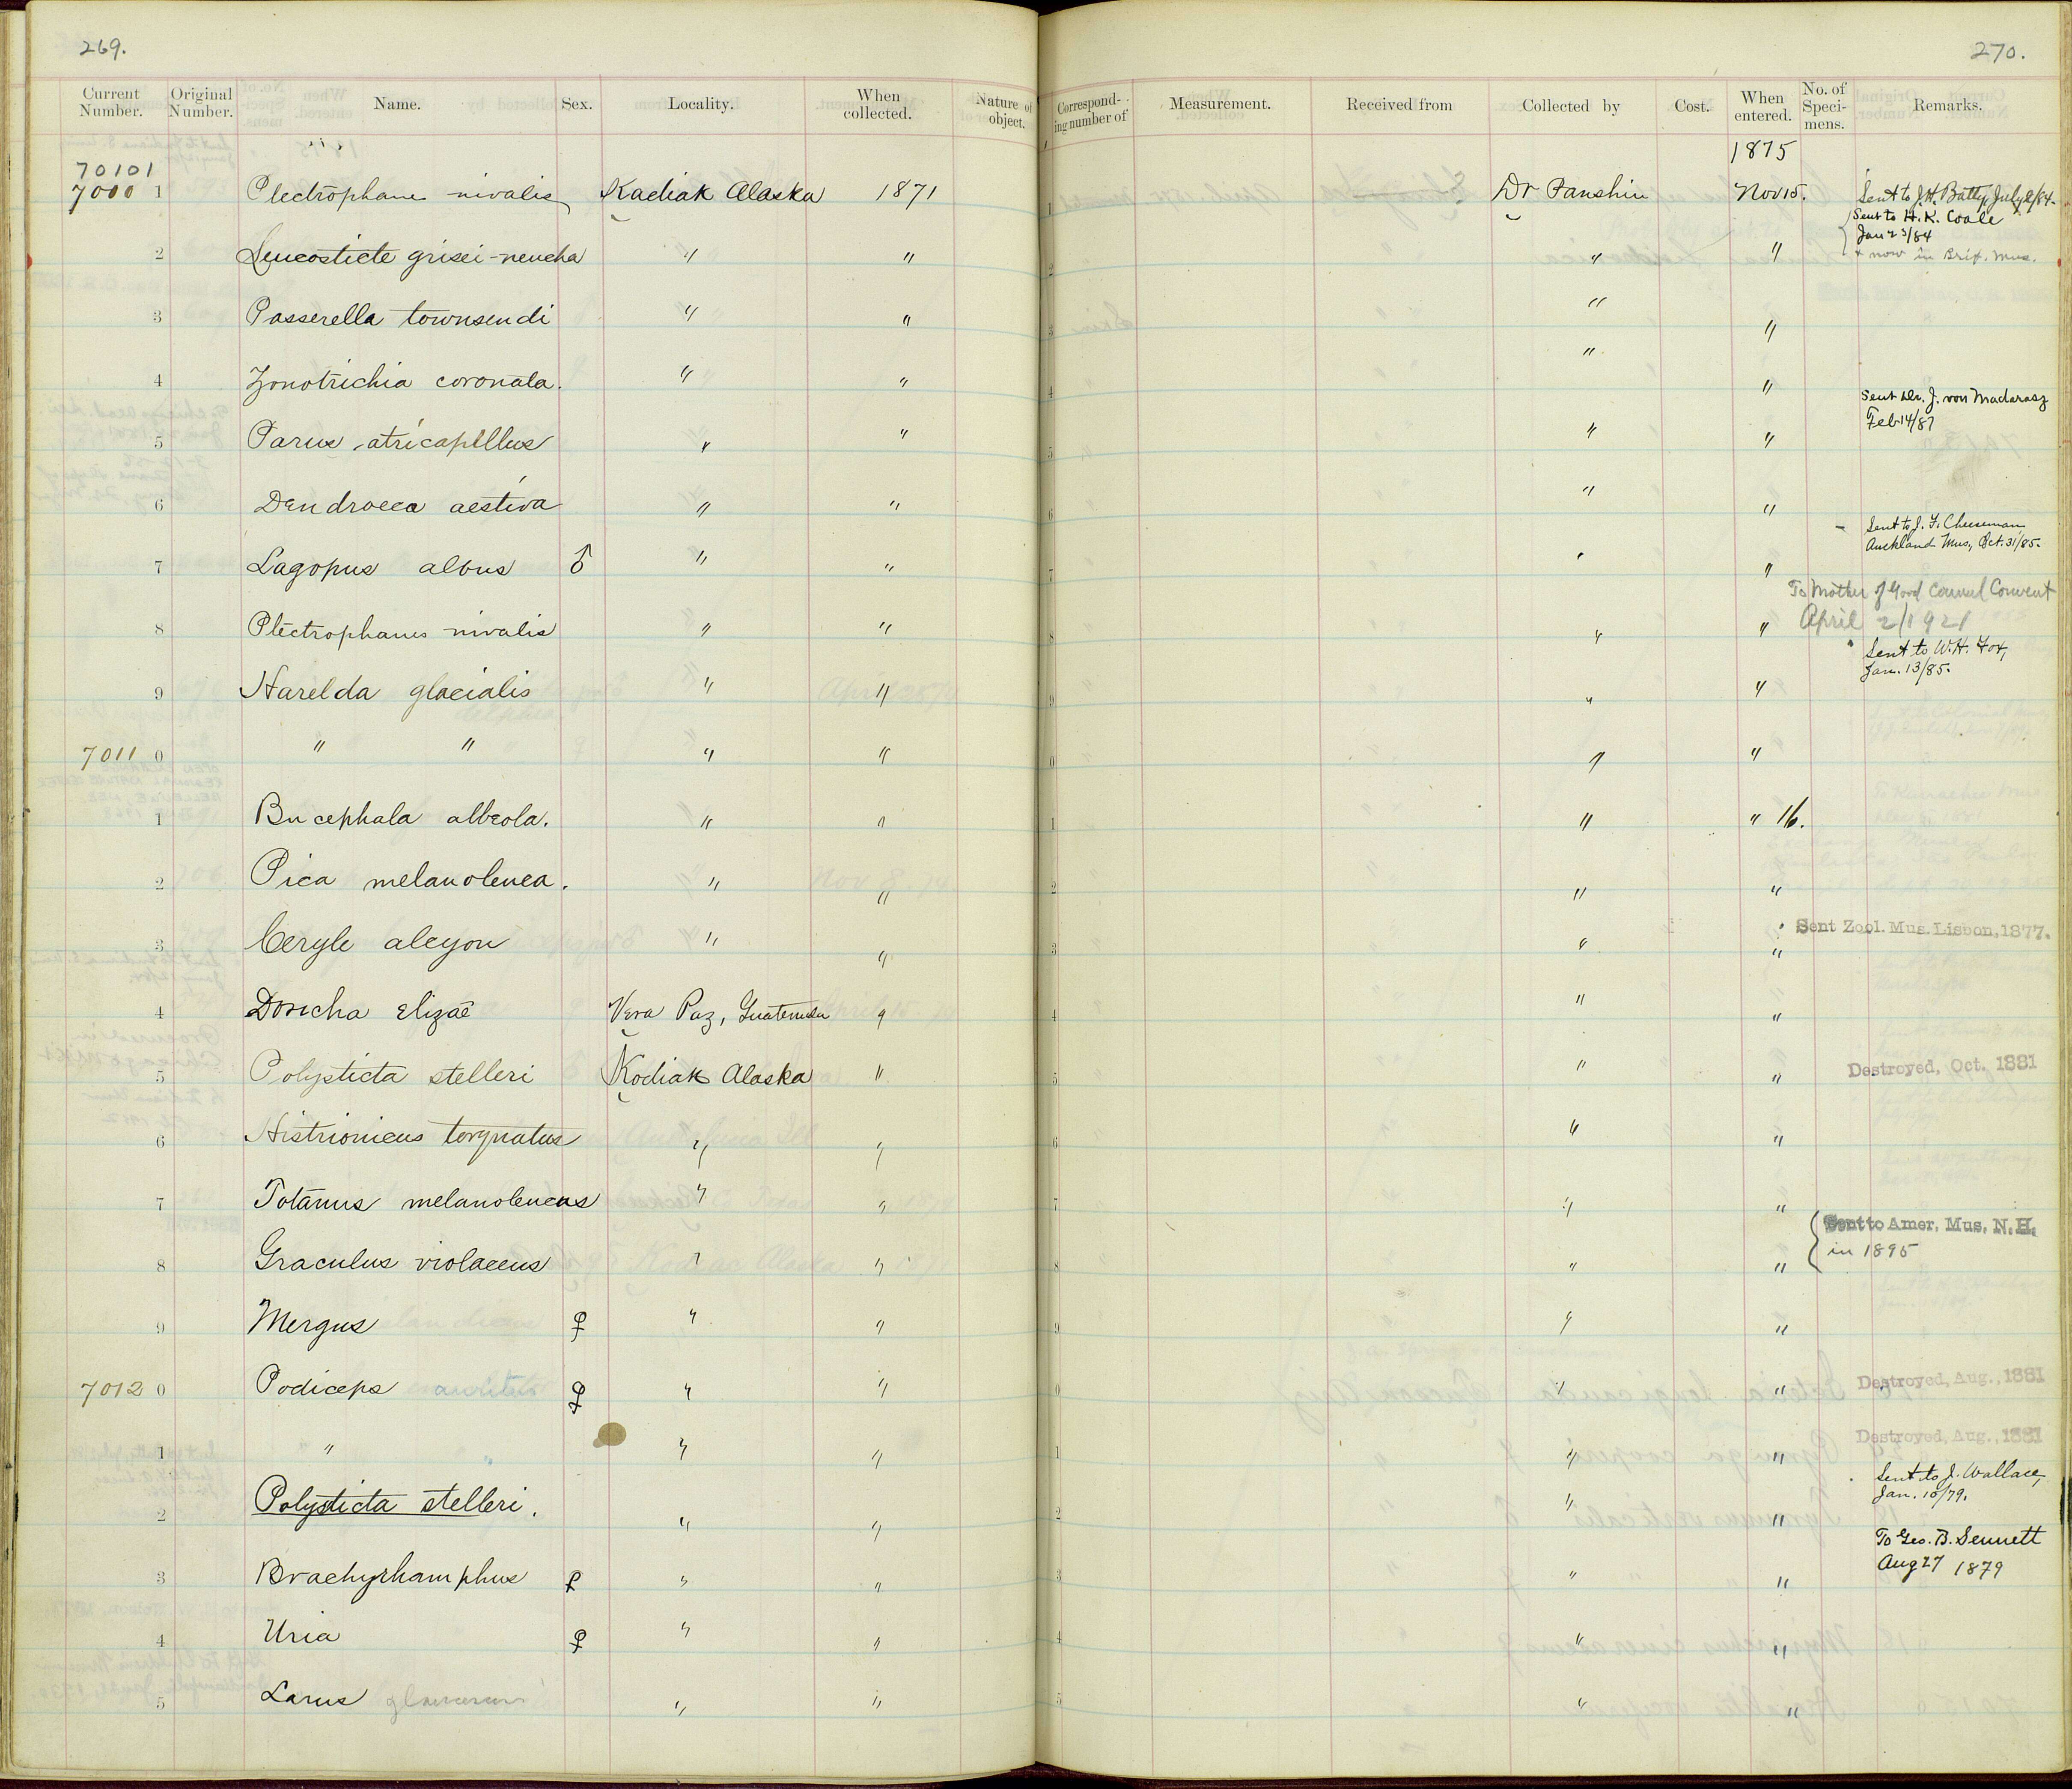 269.
270.
Current Number. Original Number. Name. Sex. Locality. When collected. Nature of object. Corresponding number of Measurement. Received from Collected by Cost. When entered. No. of Specimens. Remarks.
1875
70101
7000 1 Plectrophanes nivalis Kadiak Alaska 1871 1 Dr Panshin Nov 15. Sent to J.H. Batty, July 2/84.
Sent to H. K. Coale
Jan 23/84
2 Leucosticte grisei-nencha " " 2 " " + now in Brit. Mus.
3 Passerella townsendi " " 3 " "
4 Zonotrichia coronata. " " 4 " "
Sent Dr. J. von Madarasz
Feb 14/87
5 Parus atricapillus " " 5 " "
6 Dendroeca aestiva " " 6 " "
Sent to J. F. Cheeseman
Auckland Mus., Oct. 31/85.
7 Lagopus albus ♂ " " 7 " "
To Mother of Good Counsel Convent
April 2/1921
8 Plectrophanes nivalis " " 8 " "
Sent to W.H. Fox,
Jan. 13/85.
9 Harelda glacialis " " 9 " "
7011 0 " " " " 0 " "
1 Bucephala albeola. " " 1 " " 16.
2 Pica melanoleuca. " " 2 " "
3 Ceryle alcyon " " 3 " " Sent Zool. Mus. Lisbon, 1877.
4 Doricha Elizae Vera Paz, Guatemala " 4 " "
5 Polysticta stelleri Kodiak Alaska " 5 " " Destroyed, Oct. 1881
6 Histrionicus torquatus " " 6 " "
7 Totanus melanoleucus " " 7 " "
Sent to Amer. Mus. N.H.
in 1895
8 Graculus violaceus " " 8 " "
9 Mergus ♀ " " 9 " "
7012 0 Podiceps auritus ♀ " " 0 " " Destroyed, Aug., 1881
1 " " " " 1 " " Destroyed, Aug., 1881
Sent to J. Wallace,
Jan. 10/79.
2 Polysticta stelleri. " " 2 " "
To Geo. B. Sennett
Aug 27 1879
3 Brachyrhamphus ♀ " " 3 " "
4 Uria ♀ " " 4 " "
5 Larus " " 5 " "